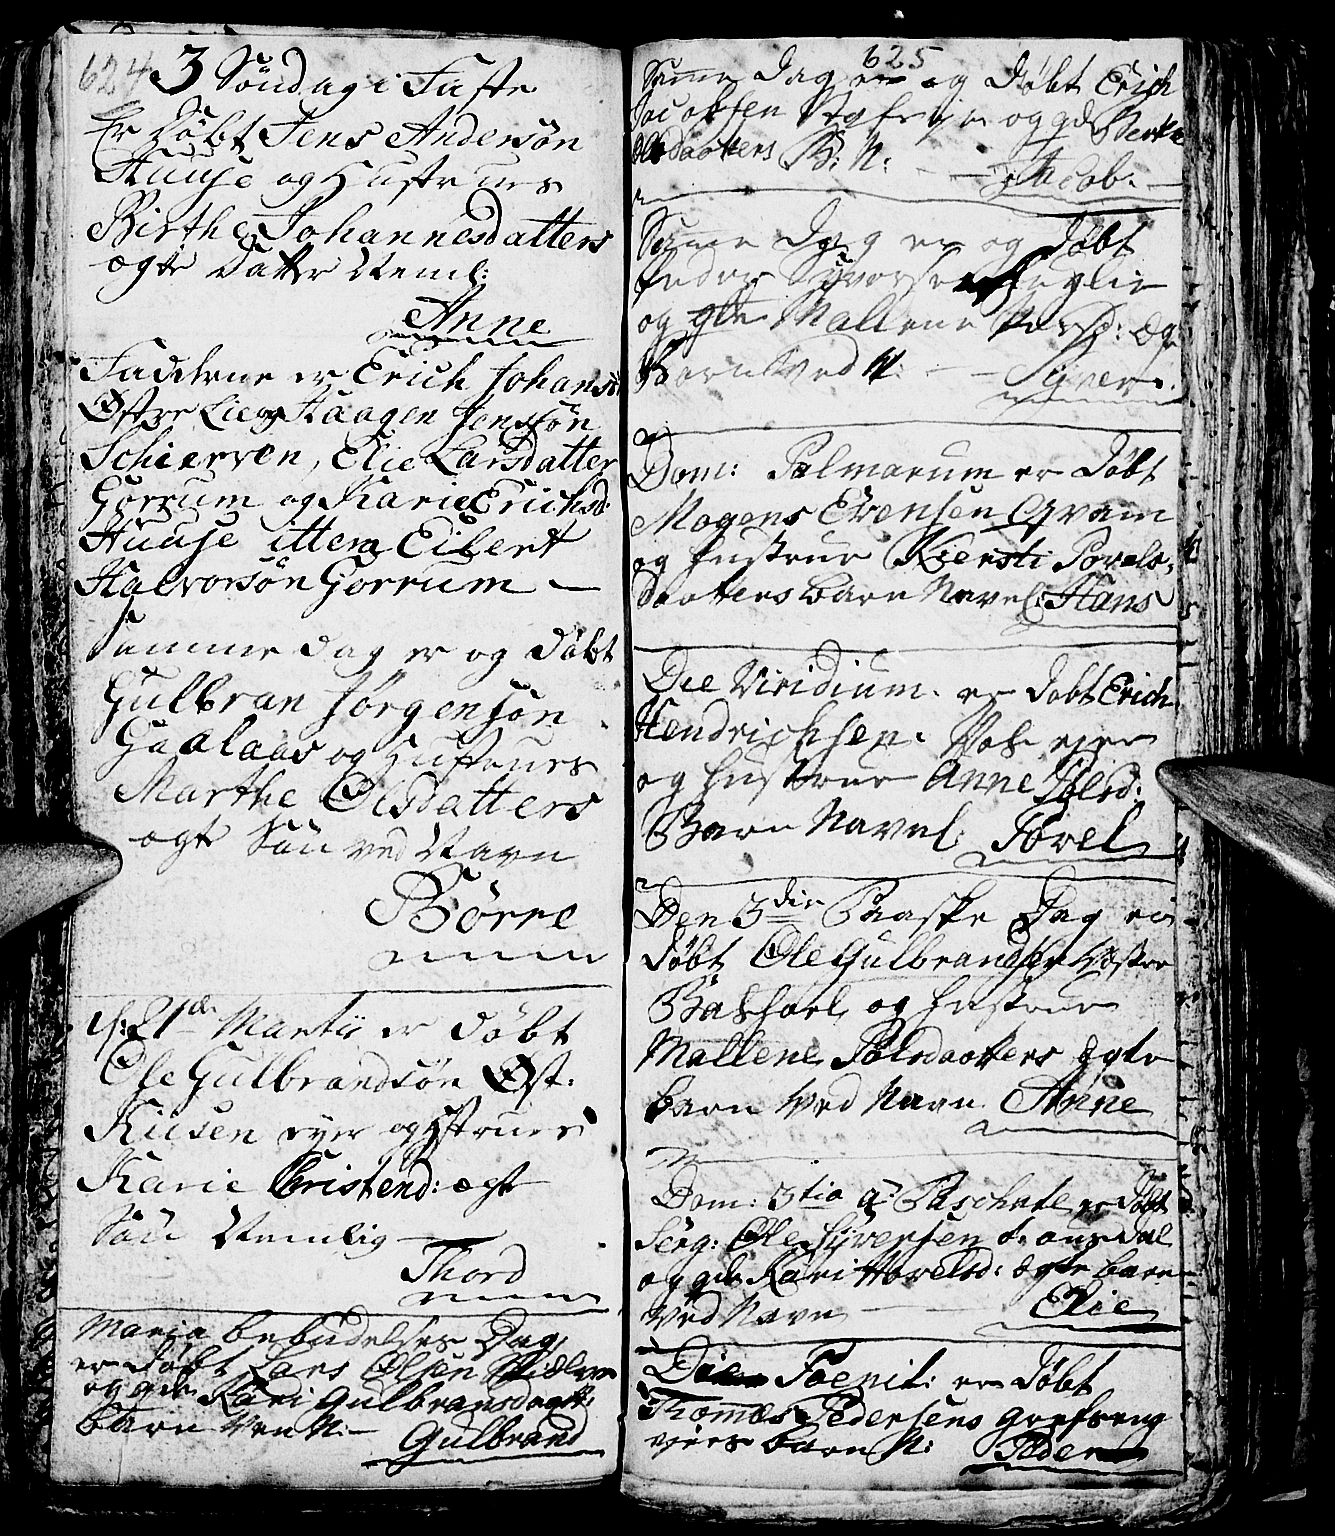 624
3 Søndag i Faste
Er Døbt Jens Andersøn
Huuse og Hustrues
Birthe Johannesdatters
ægte Datter Neml:
Anne
Fadderne er Erich Johans:
Østre Lie og Haagen Jenssøn
Schierven, Elie Larsdatter
Gorrum og Karie Erichsd:
Huuse item Eilert
Halvorsøn Gorrum
Samme dag er og døbt
Gulbran Jørgensøn
Gaalaas og Hustrues
Marthe Olsdatters
ægte Søn ved Navn
Børre
21de Martii er døbt
Ole Gulbrandsøn Øst:
Kiisen eyer og Hstrues
Karie Cristend: ægte
Søn Nemlig
Thord
Maria bebudelses Dag
er døbt Lars Olsen
og gde Kari Gulbransdaatt:
Barn N:
Gulbrand
625
Samme Dag er og døbt Erich
Jacobsen og gde
daatters B: N: Jacob.
Samme Dag er og Døbt
Peder Syversen Fuglie
og gde Mallene Persd: Æg
Barn Ved N: Syver.
Dom: Palmarum er døbt
Mogens Evensen Gvam
og hustrue Kiersti Povels-
daatters barn Navnl: Hans
Die Viridium. er døbt Erich
Hendrichsen. eyer
og hustrue Anne
Barn Navnl: Povel
Den 3die Paaske Dag er
døbt Ole Gulbrandsen Vestre
og hustrue
Mallene Palsdaatters Egte
barn Ved Navn Anne
Dom: 3tia a Paschate er døbt
Serg: Ole Syversen
og gde Kari Povelsd: ægte barn
Ved Navn Elie
Die Poenit: er Døbt
Thomas Pedersens Grefseng
eyers barn N: Peder